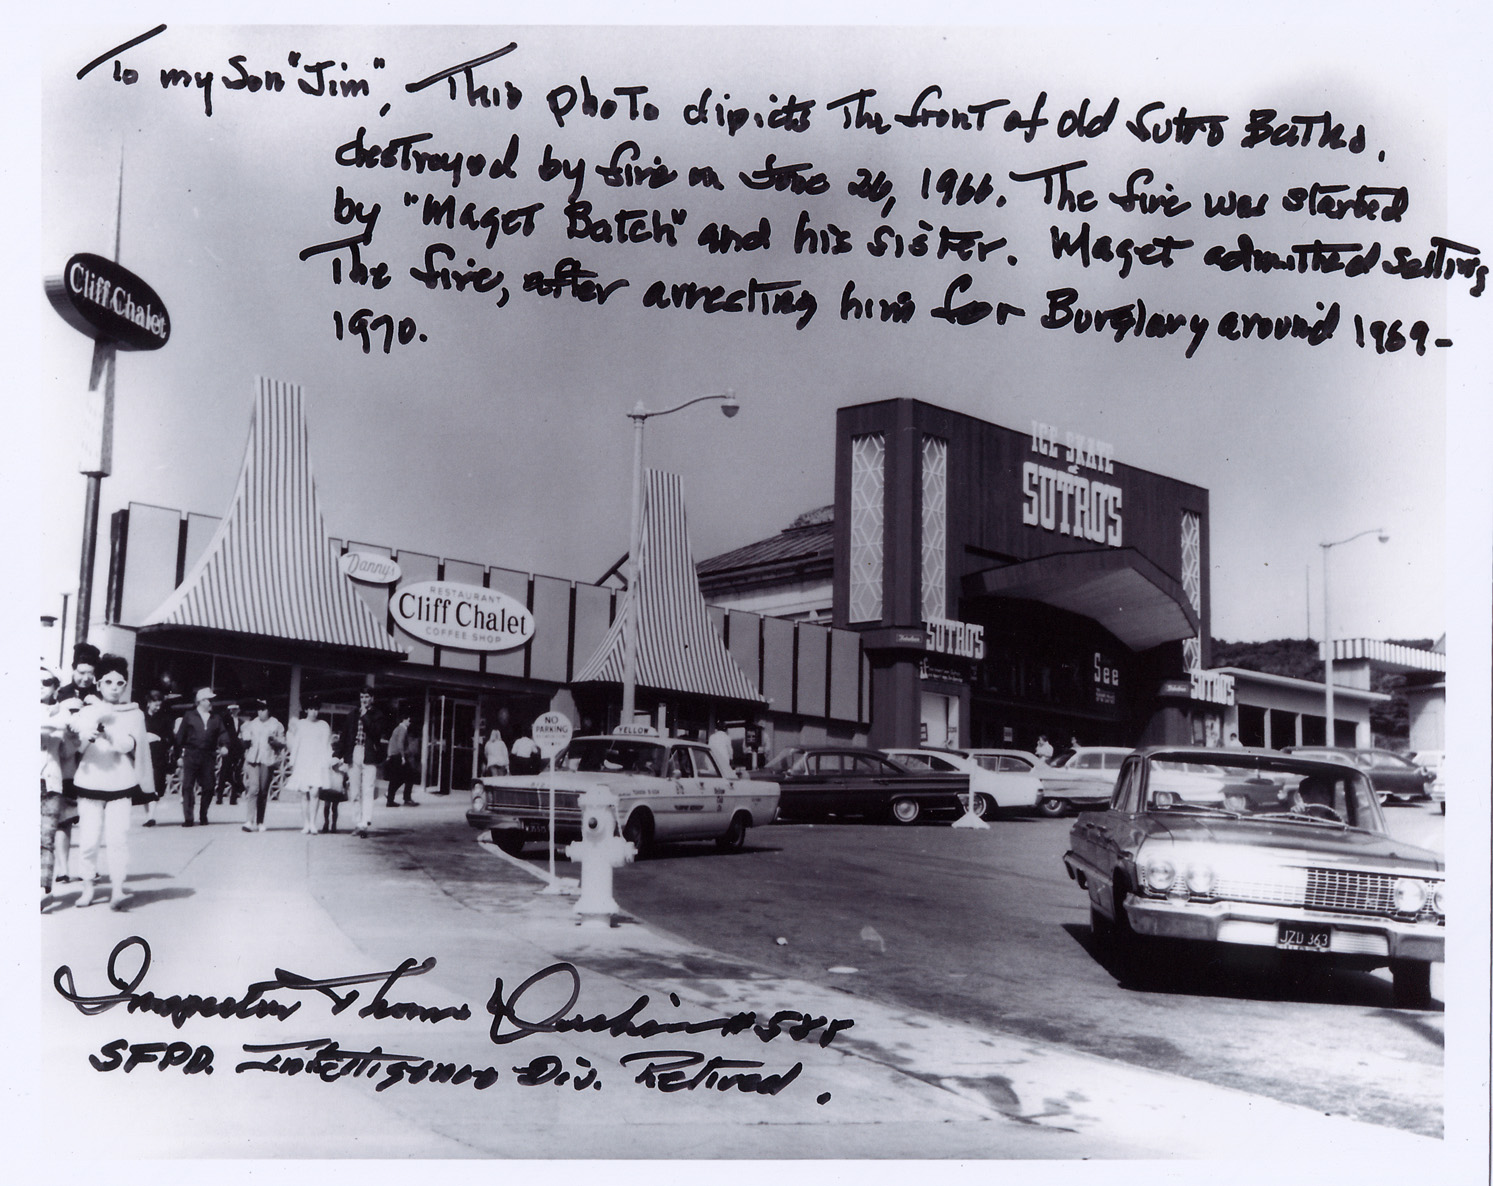 To my Son "Jim", This photo dipicts The front of old Sutro Baths.
destroyed by fire on June 26, 1966. The fire was started
by "Maget Batch" and his sister. Maget admitted setting
The fire, after arresting him for Burglary around 1969-
1970.
Cliff Chalet
ICE SKATE
SUTRO'S
Danny's
RESTAURANT
Cliff Chalet
COFFEE SHOP
SUTRO'S
See
SUTRO'S
NO
PARKING
YELLOW
JZD 363
Inspector Thomas #588
SFPD. Intelligence Div. Retired.